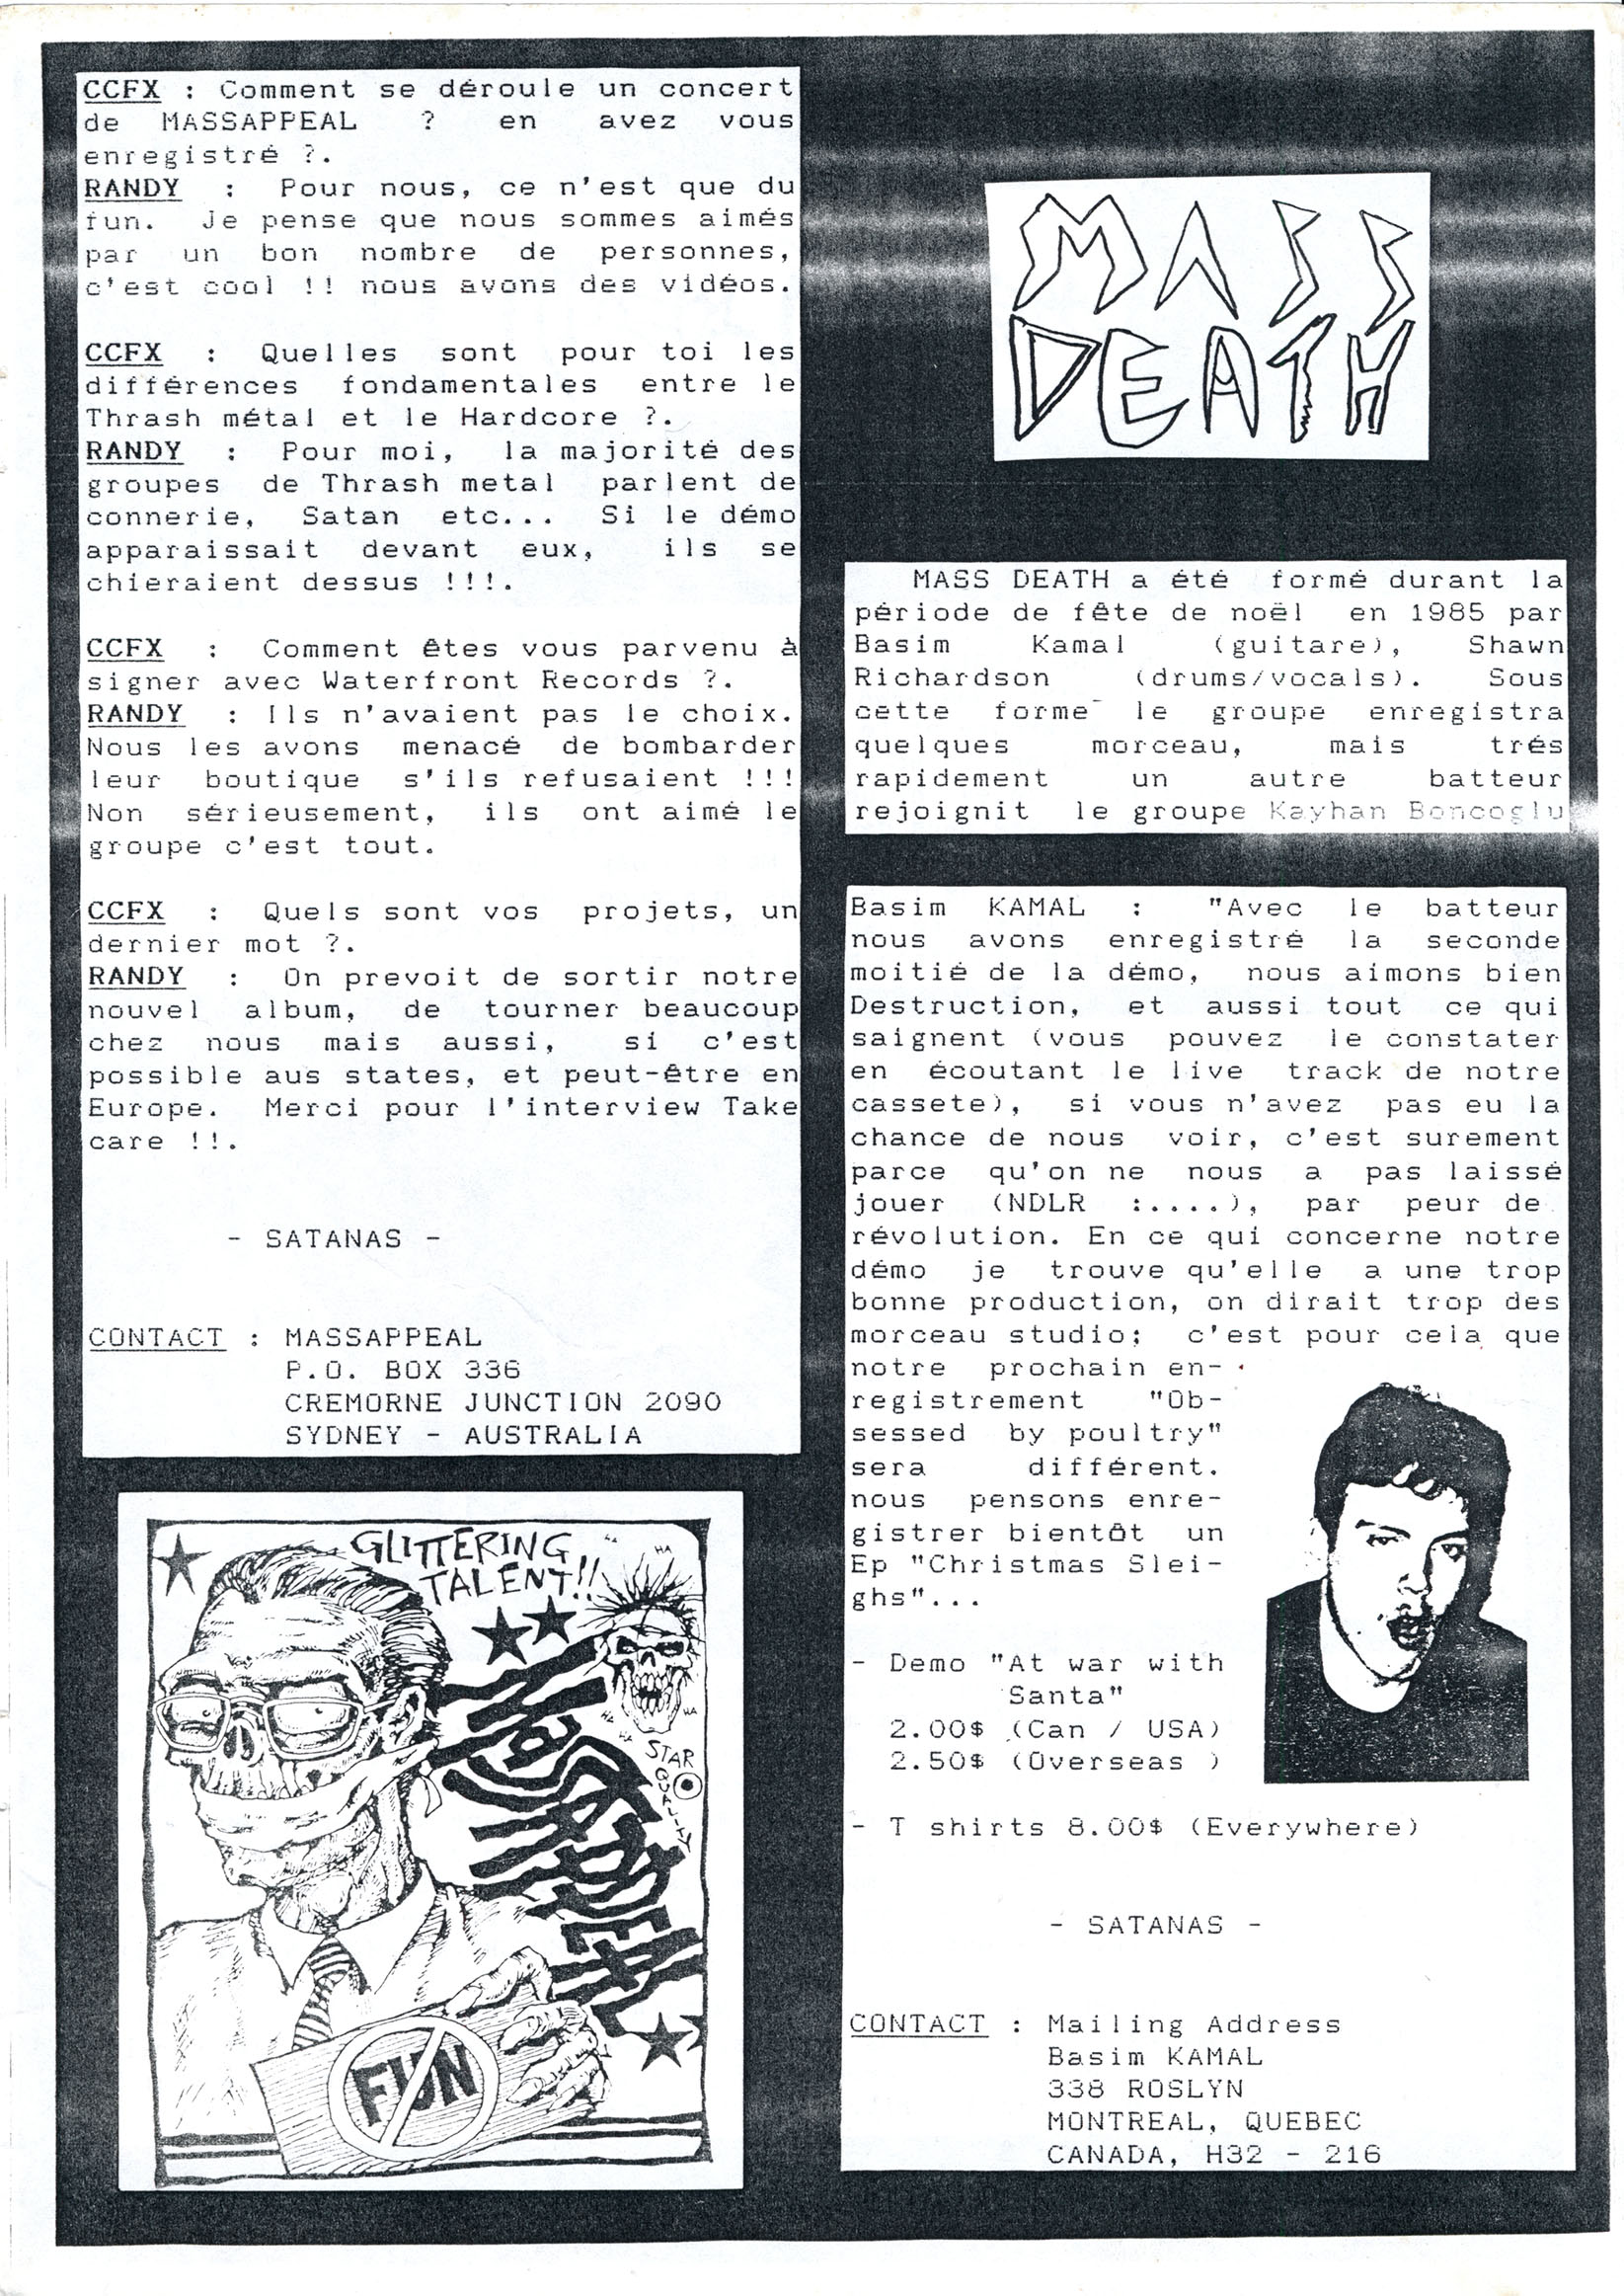 CCFX : Comment se déroule un concert
de MASSAPPEAL ? en avez vous
enregistré ?.
RANDY : Pour nous, ce n'est que du
fun. Je pense que nous sommes aimés
par un bon nombre de personnes,
c'est cool !! nous avons des vidéos.
CCFX : Quelles sont pour toi les
différences fondamentales entre le
Thrash métal et le Hardcore ?.
RANDY : Pour moi, la majorité des
groupes de Thrash metal parlent de
connerie, Satan etc... Si le démo
apparaissait devant eux, ils se
chieraient dessus !!!.
CCFX : Comment êtes vous parvenu à
signer avec Waterfront Records ?.
RANDY : Ils n'avaient pas le choix.
Nous les avons menacé de bombarder
leur boutique s'ils refusaient !!!
Non sérieusement, ils ont aimé le
groupe c'est tout.
CCFX : Quels sont vos projets, un
dernier mot ?.
RANDY : On prevoit de sortir notre
nouvel album, de tourner beaucoup
chez nous mais aussi, si c'est
possible aus states, et peut-être en
Europe. Merci pour l'interview Take
care !!.
- SATANAS -
CONTACT : MASSAPPEAL
P.O. BOX 336
CREMORNE JUNCTION 2090
SYDNEY - AUSTRALIA
GLITTERING
TALENT!!
HA
HA
HA
HA
STAR
QUALITY
MASSAPPEAL
FUN
MASS
DEATH
MASS DEATH a été formé durant la
période de fête de noël en 1985 par
Basim Kamal (guitare), Shawn
Richardson (drums/vocals). Sous
cette forme le groupe enregistra
quelques morceau, mais trés
rapidement un autre batteur
rejoignit le groupe Kayhan Boncoglu
Basim KAMAL : "Avec le batteur
nous avons enregistré la seconde
moitié de la démo, nous aimons bien
Destruction, et aussi tout ce qui
saignent (vous pouvez le constater
en écoutant le live track de notre
cassete), si vous n'avez pas eu la
chance de nous voir, c'est surement
parce qu'on ne nous a pas laissé
jouer (NDLR :....), par peur de
révolution. En ce qui concerne notre
démo je trouve qu'elle a une trop
bonne production, on dirait trop des
morceau studio; c'est pour cela que
notre prochain en-
registrement "Ob-
sessed by poultry"
sera différent.
nous pensons enre-
gistrer bientôt un
Ep "Christmas Slei-
ghs"...
- Demo "At war with
Santa"
2.00$ (Can / USA)
2.50$ (Overseas )
- T shirts 8.00$ (Everywhere)
- SATANAS -
CONTACT : Mailing Address
Basim KAMAL
338 ROSLYN
MONTREAL, QUEBEC
CANADA, H32 - 216